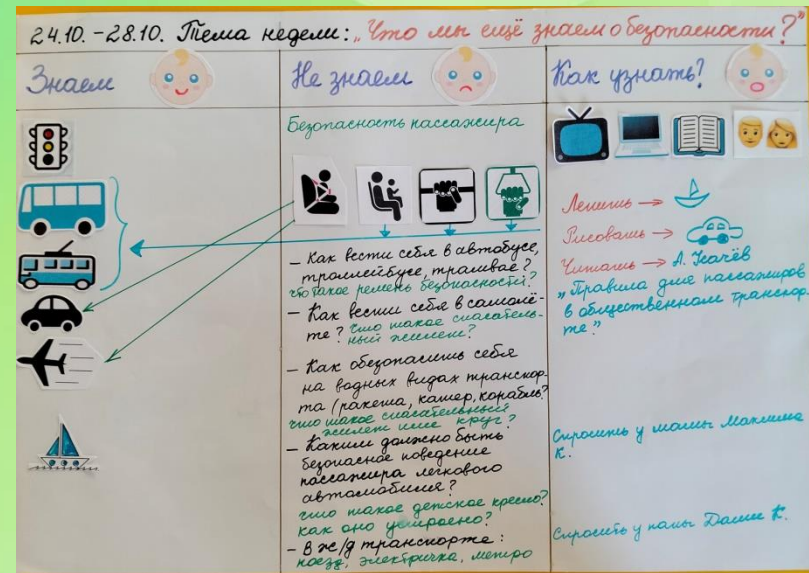 24.10.-28.10. Тема недели: „Что мы ещё знаем о безопасности?"
Знаем
Не знаем
Как узнать?
Безопасность пассажира
- Как вести себя в автобусе,
троллейбусе, трамвае?
что такое ремень безопасности?
- Как вести себя в самолё-
те? Что такое спасатель-
ный жилет?
- Как обезопасить себя
на водных видах транспор-
та (ракета, катер, корабль?
что такое спасательный
жилет или круг?
- Каким должно быть
безопасное поведение
пассажира легкового
автомобиля?
что такое детское кресло?
как оно устроено?
- В ж/д транспорте:
поезд, электричка, метро
Лепить →
Рисовать →
Читать → А. Усачёв
„Правила для пассажиров
в общественном транспор-
те"
Спросить у мамы Максима
К.
Спросить у папы Даши К.